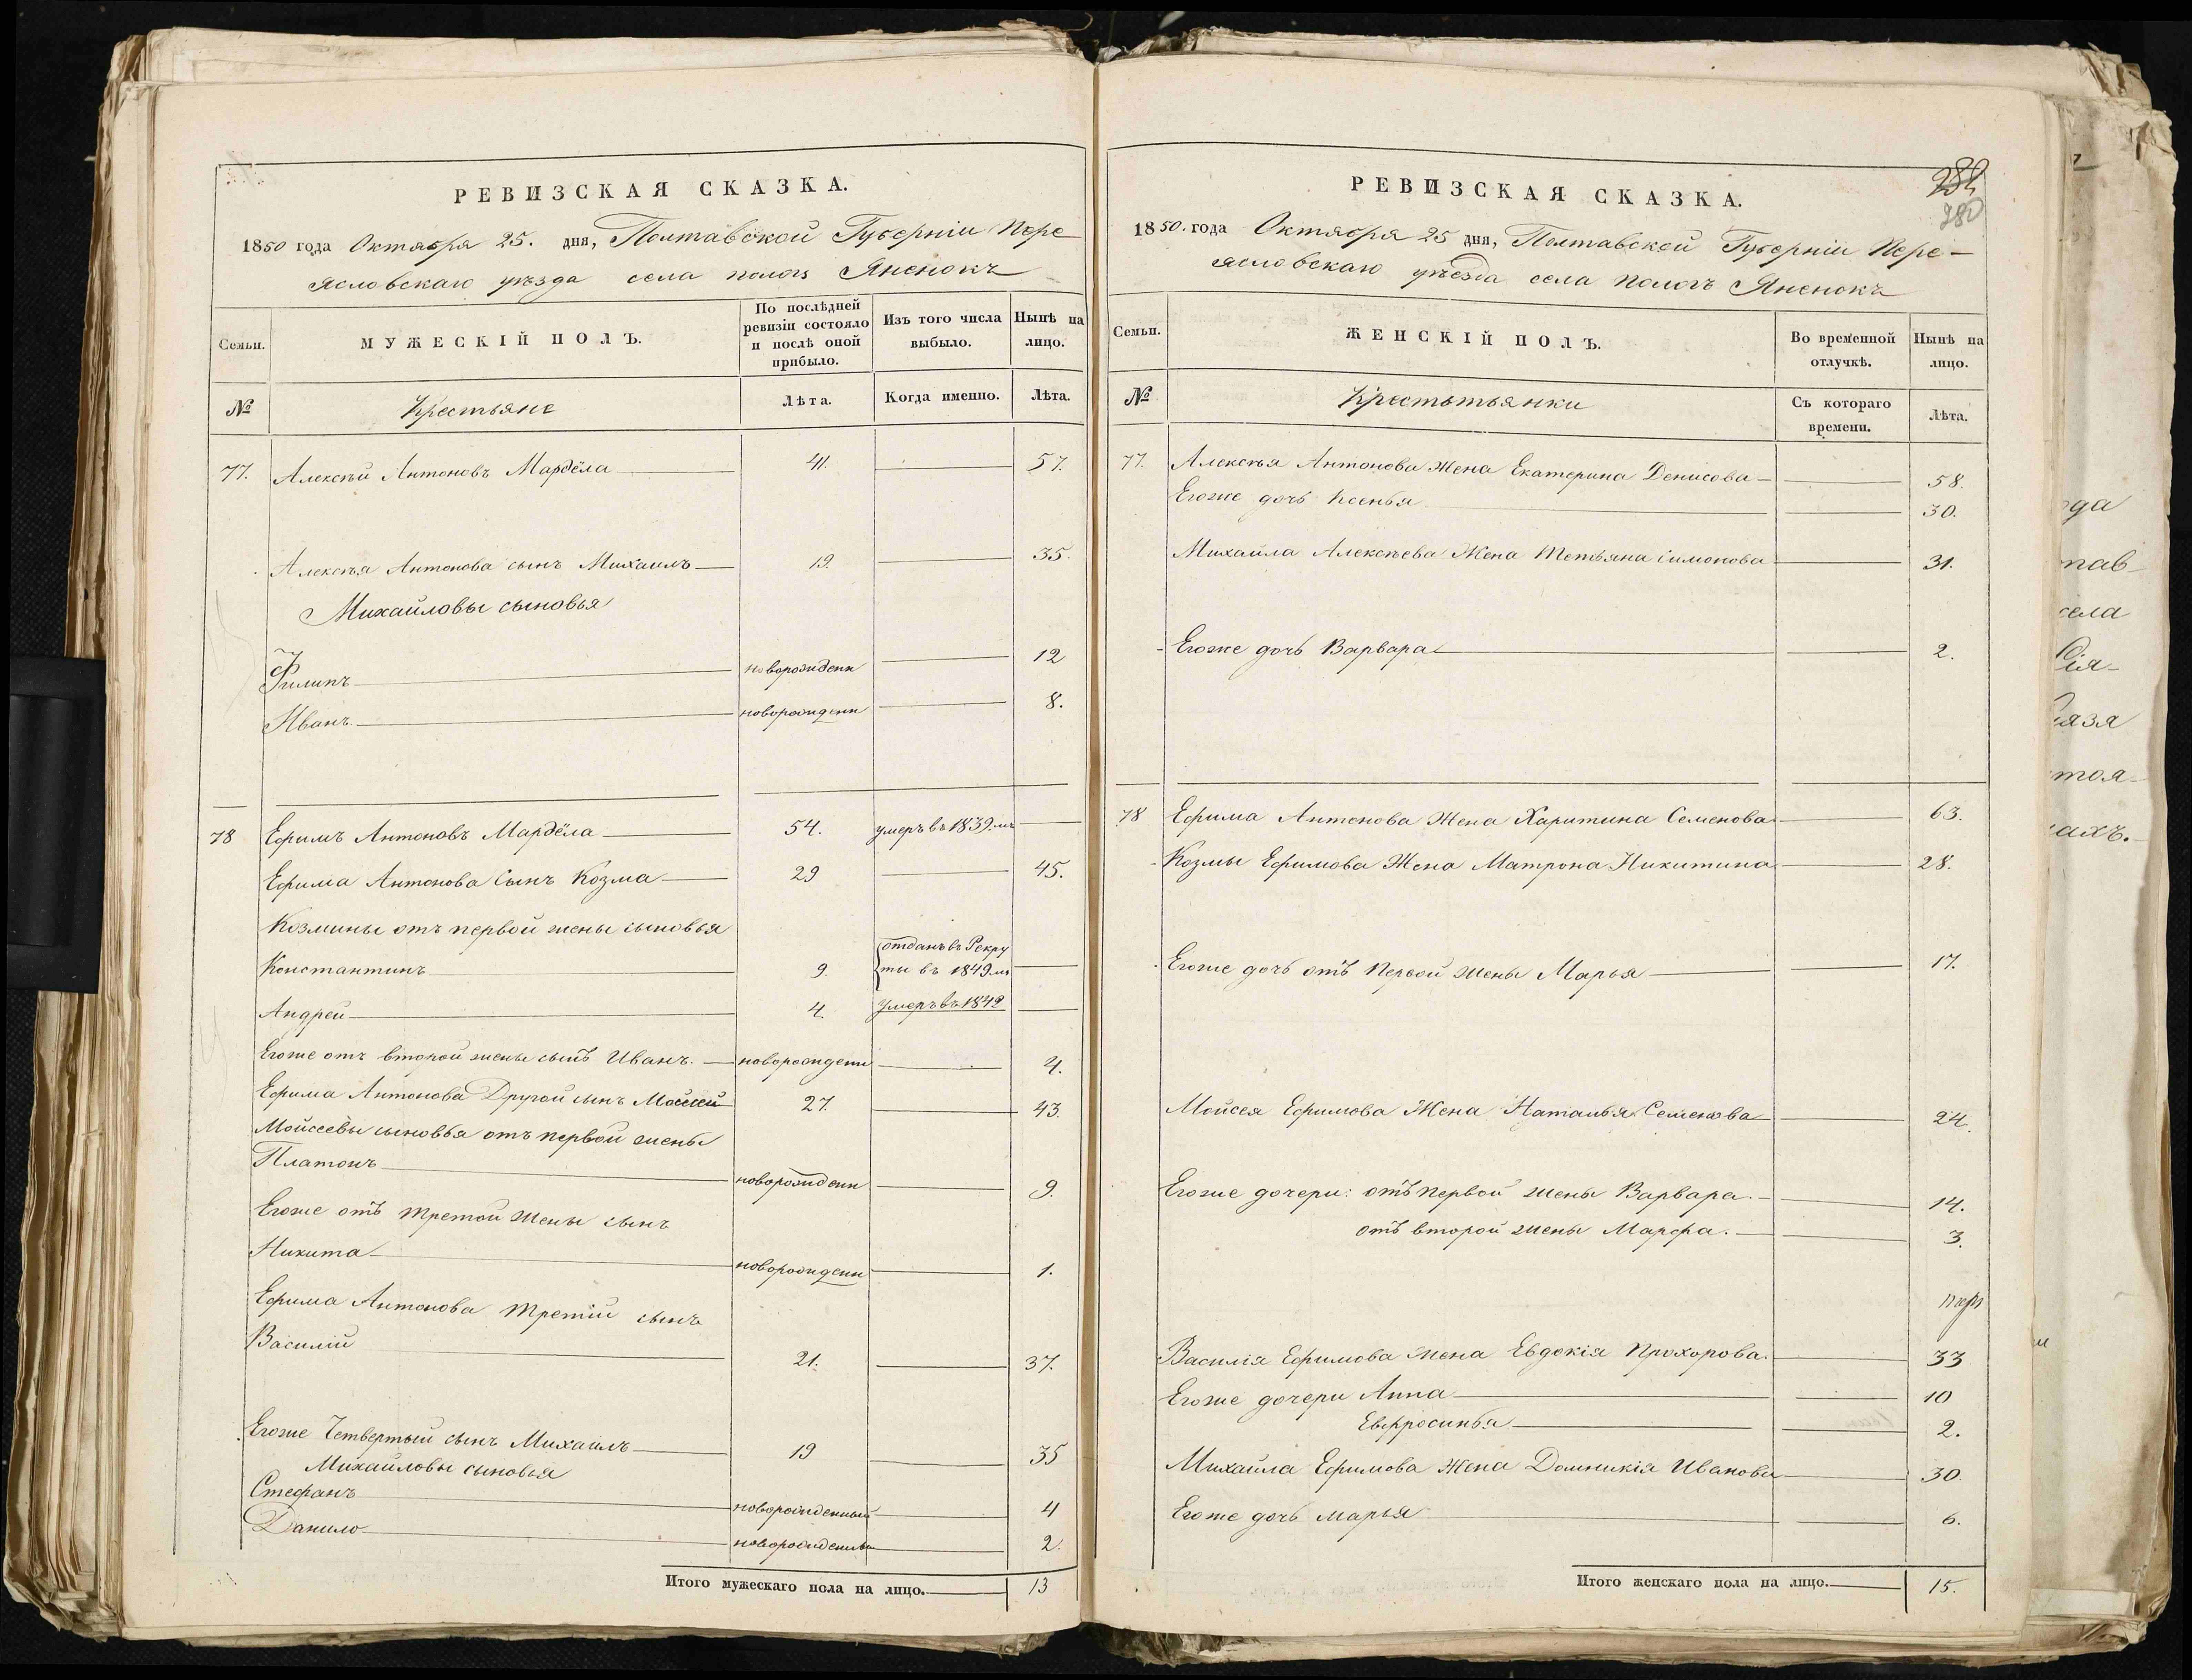 РЕВИЗСКАЯ СКАЗКА.
1850 года Октября 25. дня, Полтавской Губерніи Пере
яславскаго уѣзда села пологъ Яненокъ
Семьи.
МУЖЕСКІЙ ПОЛЪ.
По послѣдней ревизіи состояло и послѣ оной прибыло.
Изъ того числа выбыло.
Нынѣ на лицо.
№
Крестьяне
Лѣта.
Когда именно.
Лѣта.
77. Алексѣй Антоновъ Мардёла 41. 57.
Алексѣя Антонова сынъ Михаилъ 19. 35.
Михайловы сыновья
Филипъ новорожденн 12
Иванъ новорожденн 8.
78 Ефимъ Антоновъ Мардёла 54. умеръ въ 1839.мъ
Ефима Антонова Сынъ Козма 29 45.
Козмины отъ первой жены сыновья
Константинъ 9. отданъ въ Рекру
ты въ 1849.мъ
Андрей 4. умеръ въ 1842
Егоже отъ второй жены сынъ Иванъ. новорожденн 4.
Ефима Антонова Другой сынъ Мойсей 27. 43.
Мойсеевы сыновья отъ первой жены
Платонъ новорожденн 9.
Егоже отъ третой жены сынъ
Никита новорожденн 1.
Ефима Антонова третій сынъ
Василій 21. 37.
Егоже Четвертый сынъ Михаилъ 19 35
Михайловы сыновья
Стефанъ новорожденный 4
Данило новорожденный 2.
Итого мужескаго пола на лицо. 13
282
280
РЕВИЗСКАЯ СКАЗКА.
1850. года Октября 25 дня, Полтавской Губерніи Пере-
яславскаго уѣзда села пологъ Яненокъ
Семьи.
ЖЕНСКІЙ ПОЛЪ.
Во временной отлучкѣ.
Нынѣ на лицо.
№
Крестьтьянки
Съ котораго времени.
Лѣта.
77. Алексѣя Антонова Жена Екатерина Денисова 58.
Егоже дочь Ксенья 30.
Михайла Алексѣева Жена Тетьяна Симонова 31.
Егоже дочь Варвара 2.
78 Ефима Антонова Жена Харитина Семенова 63.
Козмы Ефимова Жена Матрона Никитина 28.
Егоже дочь отъ Первой жены Марья 17.
Мойсея Ефимова Жена Наталья Семенова 24.
Егоже дочери: отъ первой жены Варвара. 14.
отъ второй жены Марфа. 3.
Василія Ефимова Жена Евдокія Прохорова. 33
Егоже дочери Анна 10
Евфросинья 2.
Михайла Ефимова Жена Домникія Иванова 30.
Егоже дочь Марья 6.
Итого женскаго пола на лицо. 15.